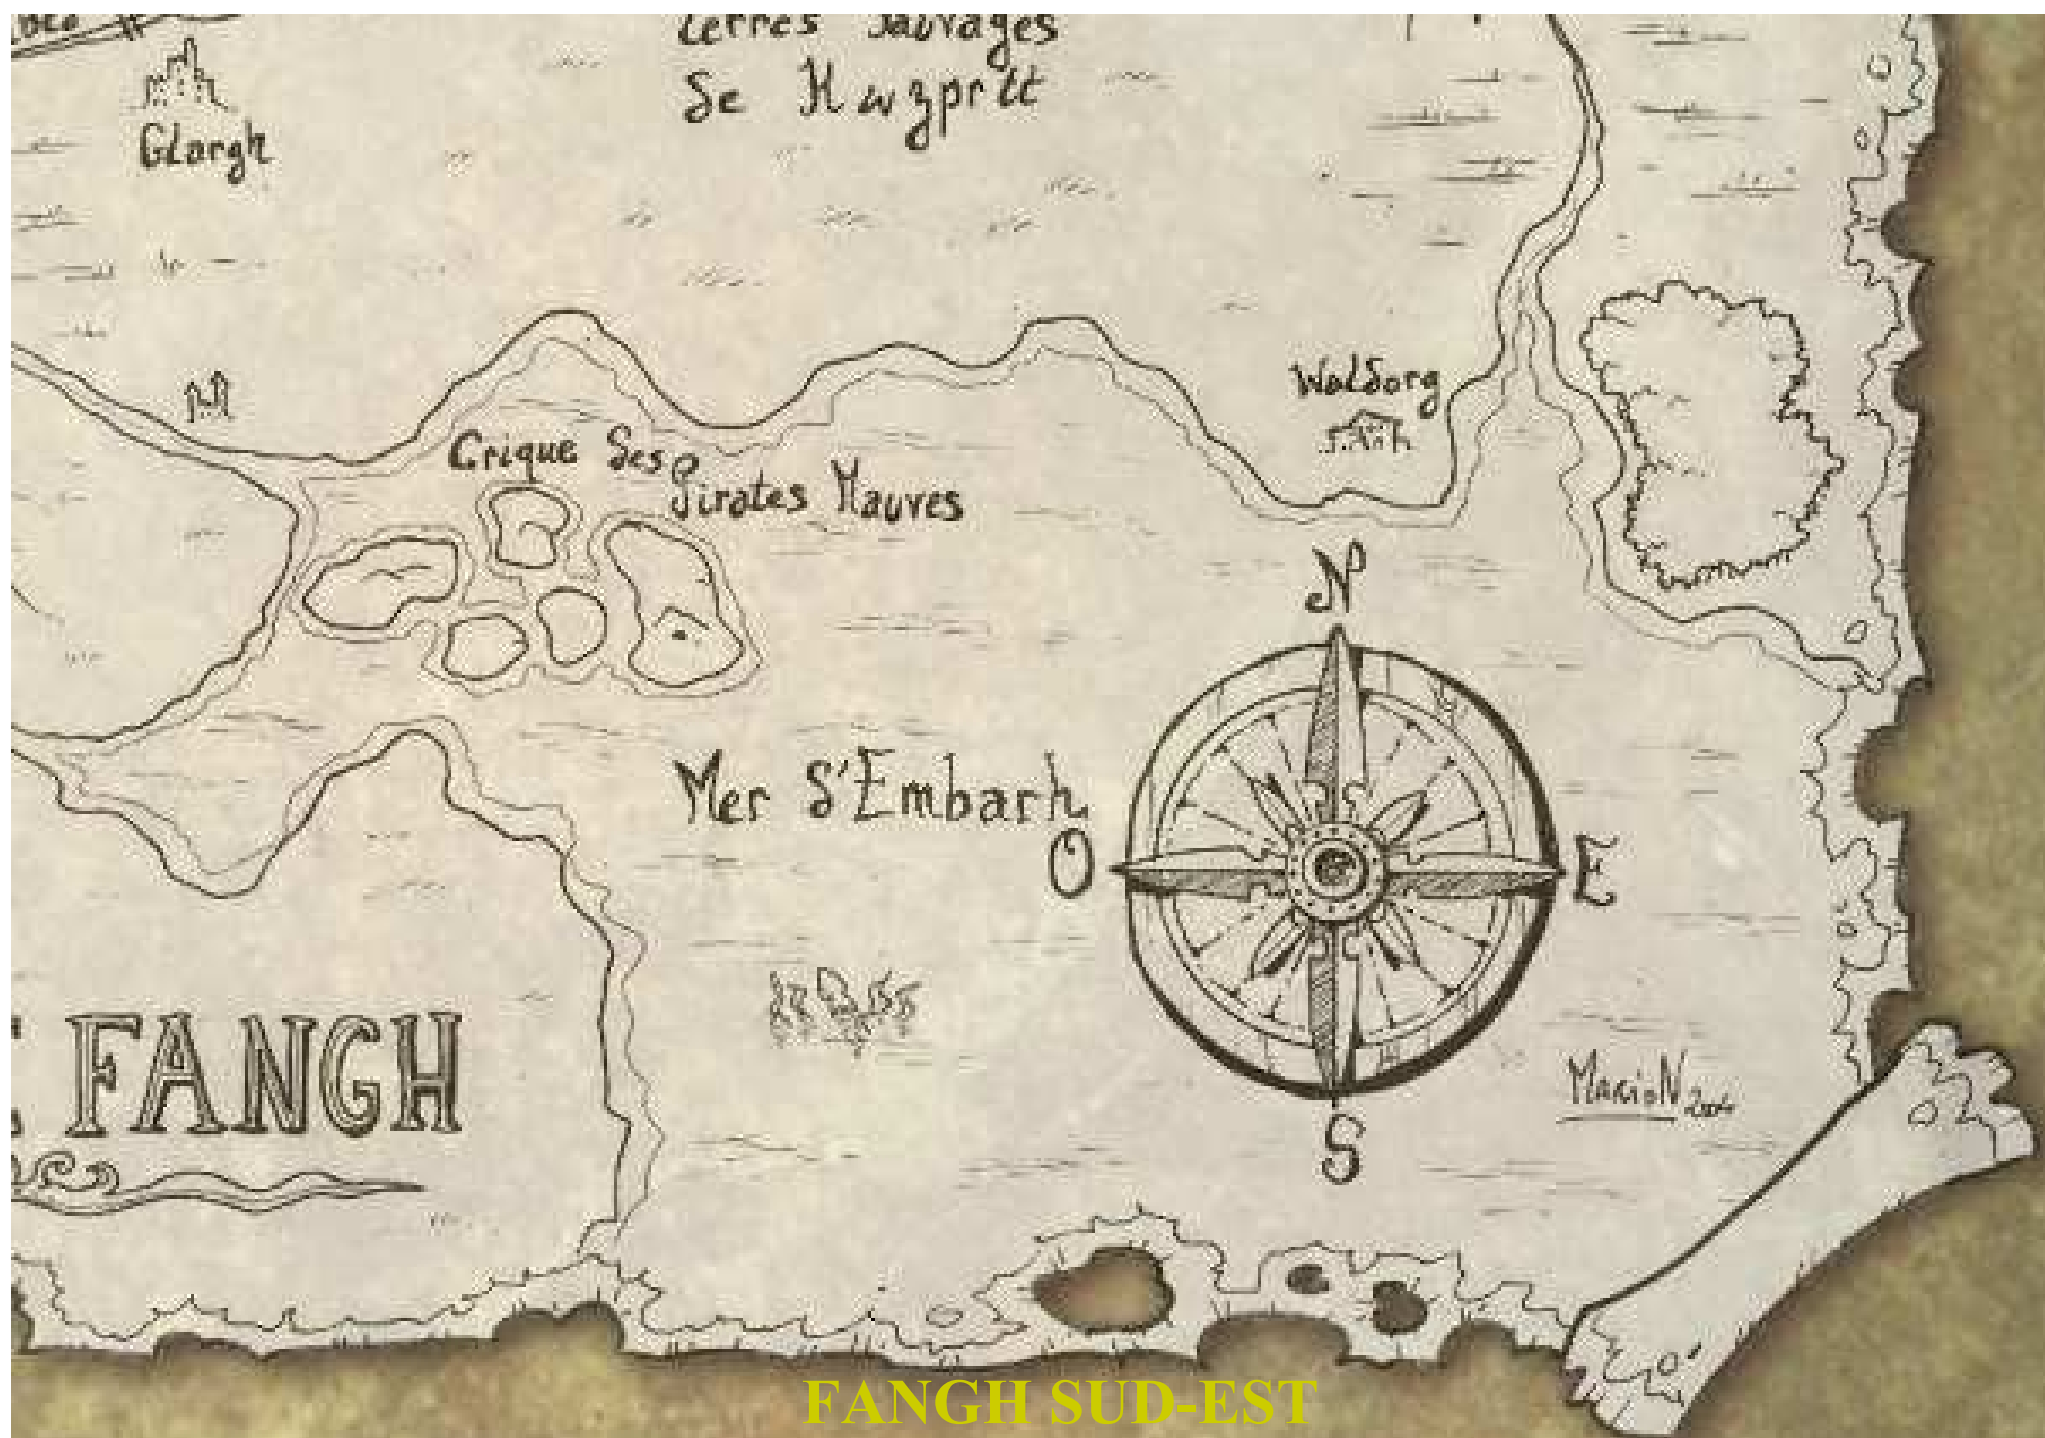 Terres Sauvages
de Kwzprtt
Glargh
Waldorg
Crique des
Pirates Mauves
N
Mer d'Embarh
O
E
FANGH
MARioN 2004
S
FANGH SUD-EST